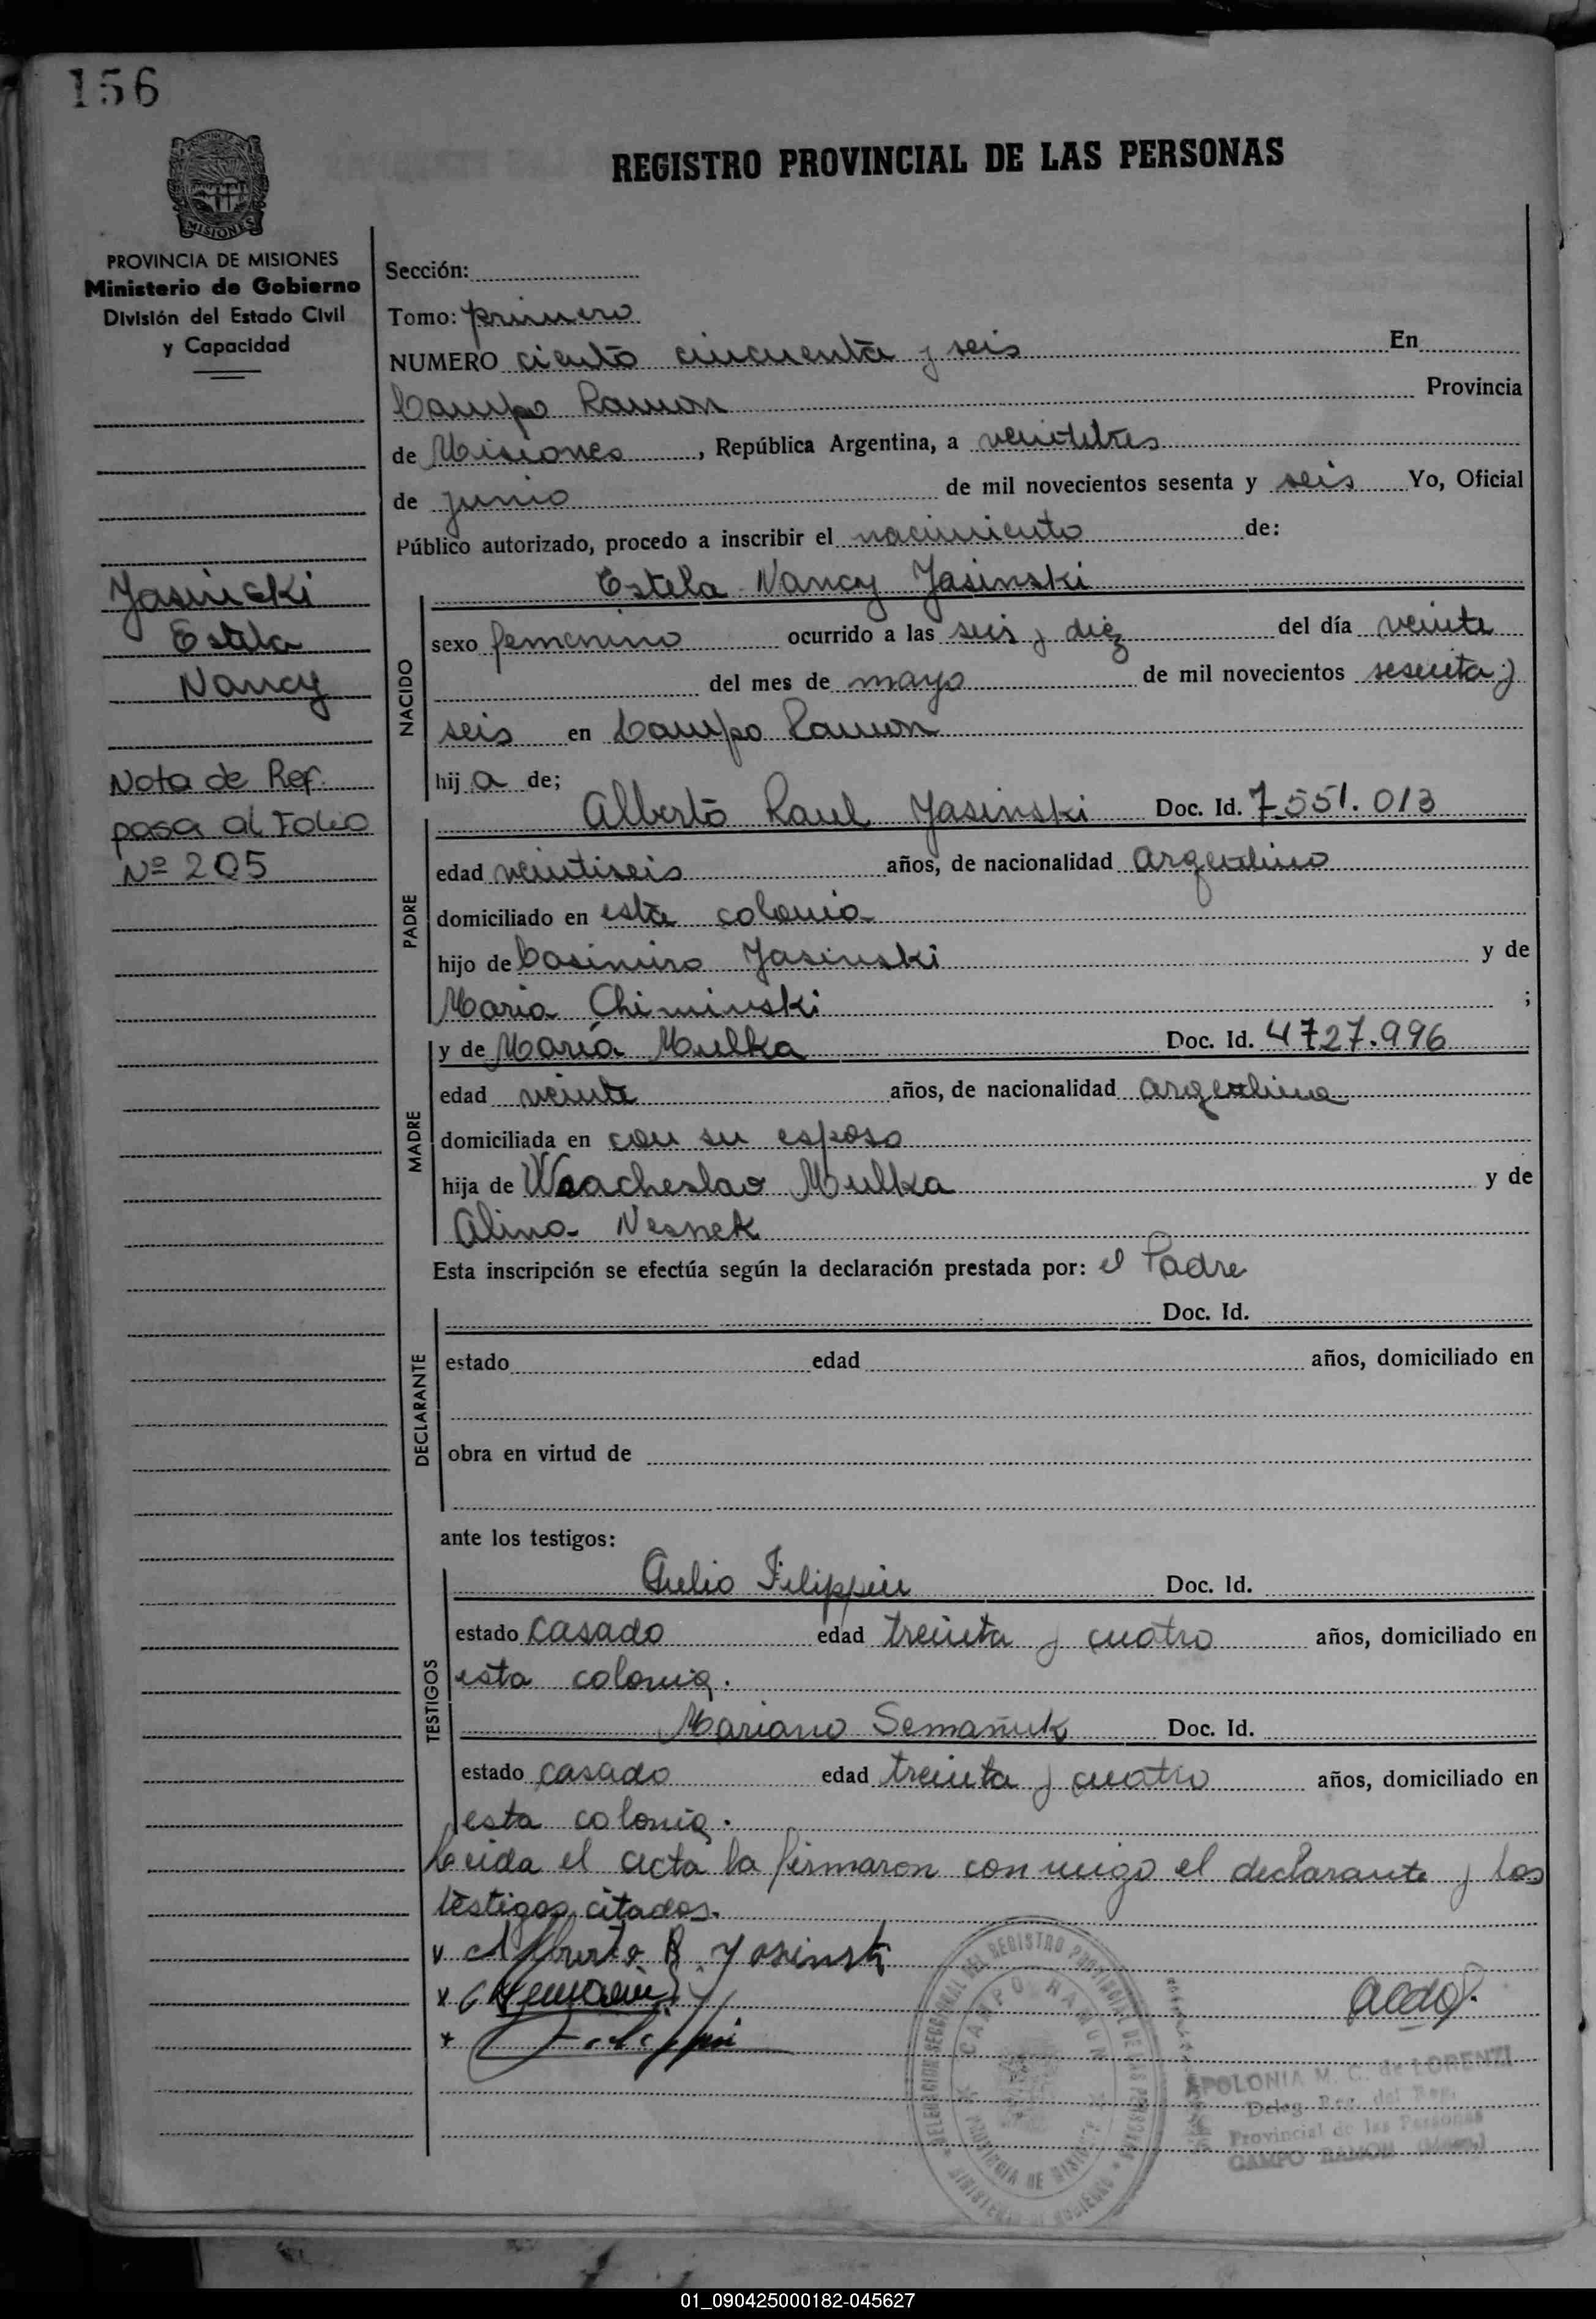 156
PROVINCIA
MISIONES
REGISTRO PROVINCIAL DE LAS PERSONAS
PROVINCIA DE MISIONES
Ministerio de Gobierno
División del Estado Civil
y Capacidad
Jasincki
Estela
Nancy
Nota de Ref.
pasa al Folio
Nº 205
Sección:
Tomo: primero
NUMERO ciento cincuenta y seis En
Campo Ramon Provincia
de Misiones, República Argentina, a veintitres
de junio de mil novecientos sesenta y seis Yo, Oficial
Público autorizado, procedo a inscribir el nacimiento de:
Estela Nancy Jasinski
NACIDO
sexo femenino ocurrido a las seis y diez del día veinte
del mes de mayo de mil novecientos sesenta y
seis en Campo Ramon
hij a de;
PADRE
Alberto Raul Jasinski Doc. Id. 7.551.013
edad veintiseis años, de nacionalidad argentino
domiciliado en esta colonia
hijo de Casimiro Jasinski y de
Maria Chiminski ;
MADRE
y de María Mulka Doc. Id. 4727.996
edad veinte años, de nacionalidad argentina
domiciliada en con su esposo
hija de Waacheslao Mulka y de
Alina Nesnek
Esta inscripción se efectúa según la declaración prestada por: el Padre
DECLARANTE
Doc. Id.
estado edad años, domiciliado en
obra en virtud de
ante los testigos:
TESTIGOS
Filippin Doc. Id.
estado casado edad treinta y cuatro años, domiciliado en
esta colonia.
Mariano Semañuk Doc. Id.
estado casado edad treinta y cuatro años, domiciliado en
esta colonia.
Leida el acta la firmaron con migo el declarante y los
testigos citados.
Alberto R. Yasinski
DELEGACION SECCIONAL DEL REGISTRO PROVINCIAL DE LAS PERSONAS
CAMPO RAMON
PROVINCIA DE MISIONES
MINISTERIO DE GOBIERNO
APOLONIA M. C. de LORENZI
Deleg. Rec. del Reg.
Provincial de las Personas
CAMPO RAMON (Mnes.)
01_090425000182-045627